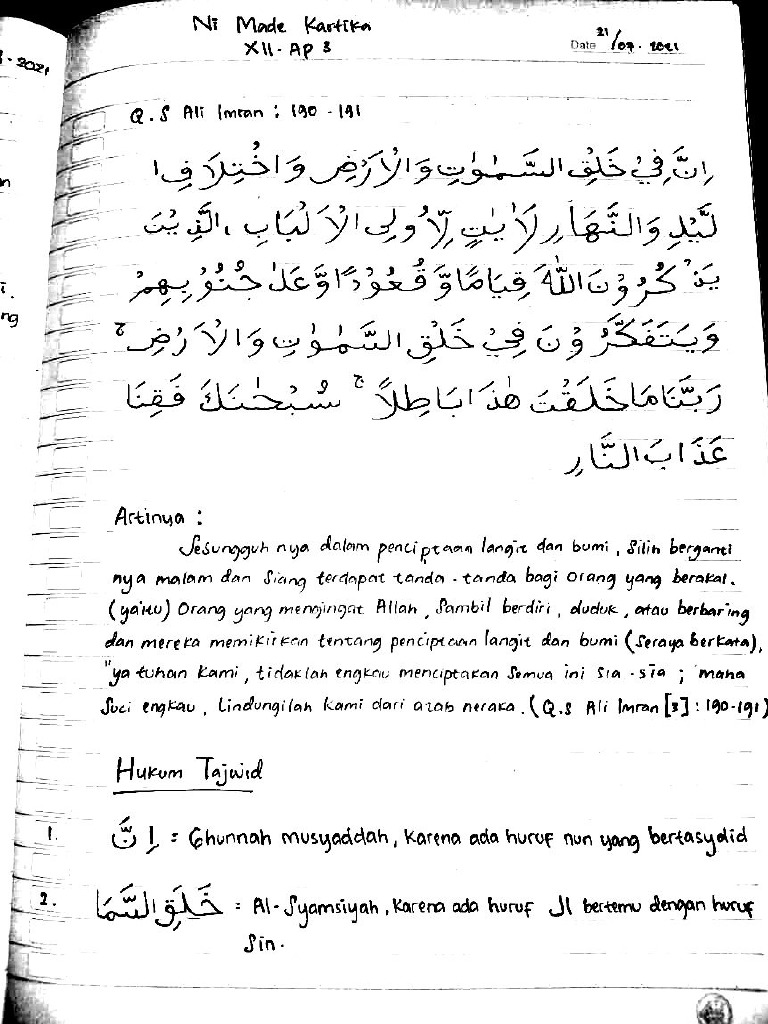 Ni Made Kartika
XII - Ap 3
Date 21/07 - 2021
- 2021
Q.S Ali Imran : 190 - 191
اِنَّ فِيْ خَلْقِ السَّمٰوٰتِ وَالْاَرْضِ وَاخْتِلَا فِ ا
لَّيْلِ وَالنَّهَا رِ لَاٰ يٰتٍ لِّاُ ولِى الْاَ لْبَابِ ، الَّذِيْنَ
يَذْ كُرُوْنَ اللّٰهَ قِيَامًا وَّ قُعُوْدًا وَّ عَلٰ جُنُوْ بِهِمْ
وَيَتَفَكَّرُ وْ نَ فِيْ خَلْقِ السَّمٰوٰتِ وَالْاَ رْضِ ۚ
رَبَّنَا مَا خَلَقْتَ هٰذَا بَا طِلًا ۚ سُبْحٰنَكَ فَقِنَا
عَذَا بَ النَّا رِ
Artinya :
Sesungguh nya dalam penciptaan langit dan bumi, silih berganti
nya malam dan siang terdapat tanda - tanda bagi orang yang berakal.
(yaitu) Orang yang mengingat Allah, sambil berdiri, duduk, atau berbaring
dan mereka memikirkan tentang penciptaan langit dan bumi (seraya berkata),
"ya tuhan kami, tidaklah engkau menciptakan semua ini sia - sia ; maha
suci engkau, lindungilah kami dari azab neraka. (Q.S Ali Imran [3] : 190-191)
Hukum Tajwid
1. اِنَّ = Ghunnah musyaddah, karena ada huruf nun yang bertasydid
2. خَلَقِ السَّمَا = Al - Syamsiyah, karena ada huruf ال bertemu dengan huruf
Sin.
ng